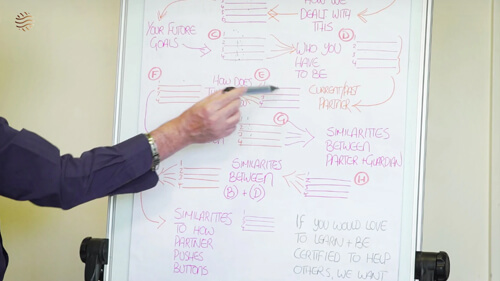 HOW WE
DEALT WITH
THIS
YOUR FUTURE
GOALS
C
1
2
3
4
WHO YOU
HAVE
TO BE
D
1
2
3
4
F
HOW DOES
E
CURRENT/PAST
PARTNER
G
SIMILARITIES
BETWEEN
PARTER + GUARDIAN
SIMILARITES
BETWEEN
B + D
H
SIMILARITIES
TO HOW
PARTNER
PUSHES
BUTTONS
IF YOU WOULD LOVE
TO LEARN + BE
CERTIFIED TO HELP
OTHERS, WE WANT